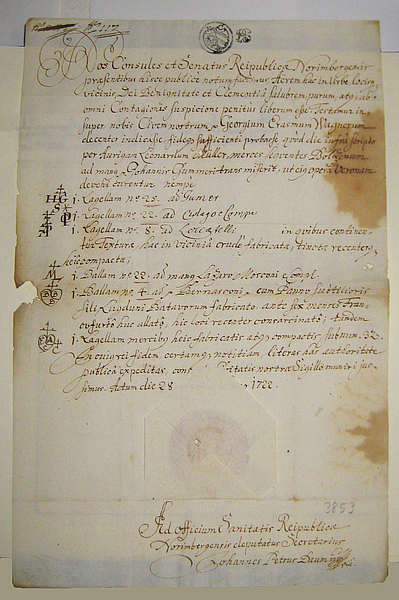 Nos Consules et Senatus Reipublicæ Norimbergensis
præsentibus hisce publicè notum facimus Aerem hac in Urbe locisq
vicinis, Dei Benignitate et Clementiâ salubrem, purum, atq ab
omni Contagionis suspicione penitus liberum esse. Testamur in
super nobis Civem nostrum Georgium Erasmum Wagnerum
decenter indicasse, fideq sufficienti probasse quòd die infra scripto
per Aurigam Leonardum Müller, merces sequentes Bolzanum
ad man Johannis Gummeri transmiserit, ut eius opera Veronam
devehi curentur nempe
HG 1. Lagellam no. 25. ad Gumer
1. Lagellam no. 22. ad Comp
1. Lagellam no. 8. ad in quibus continen-
tur Textura hac in vicinia crudè fabricata, tincta recenter
heic compacta;
M 1. Ballam no. 22. ad man Lazaro Morsconi e
1. Ballam no. 4. ad Bernasconi, cum Panno subtilioris
fili Lugduni Batavorum fabricato, ante sex menses Fran-
cofurto huc allato, hic loci recenter consarcinato; tandem
1. Lagellam mercibus heic fabricatis atq compactis sub num. 32.
In cuius rei fidem, certamq notitiam literas has autoritate
publicâ expeditas nostræ Sigillo muniri jus-
simus. Actum die 28 1722.
3853
Ad officium Sanitatis Reipublicæ
Norimbergensis deputatus Secretarius
Johannes Petrus